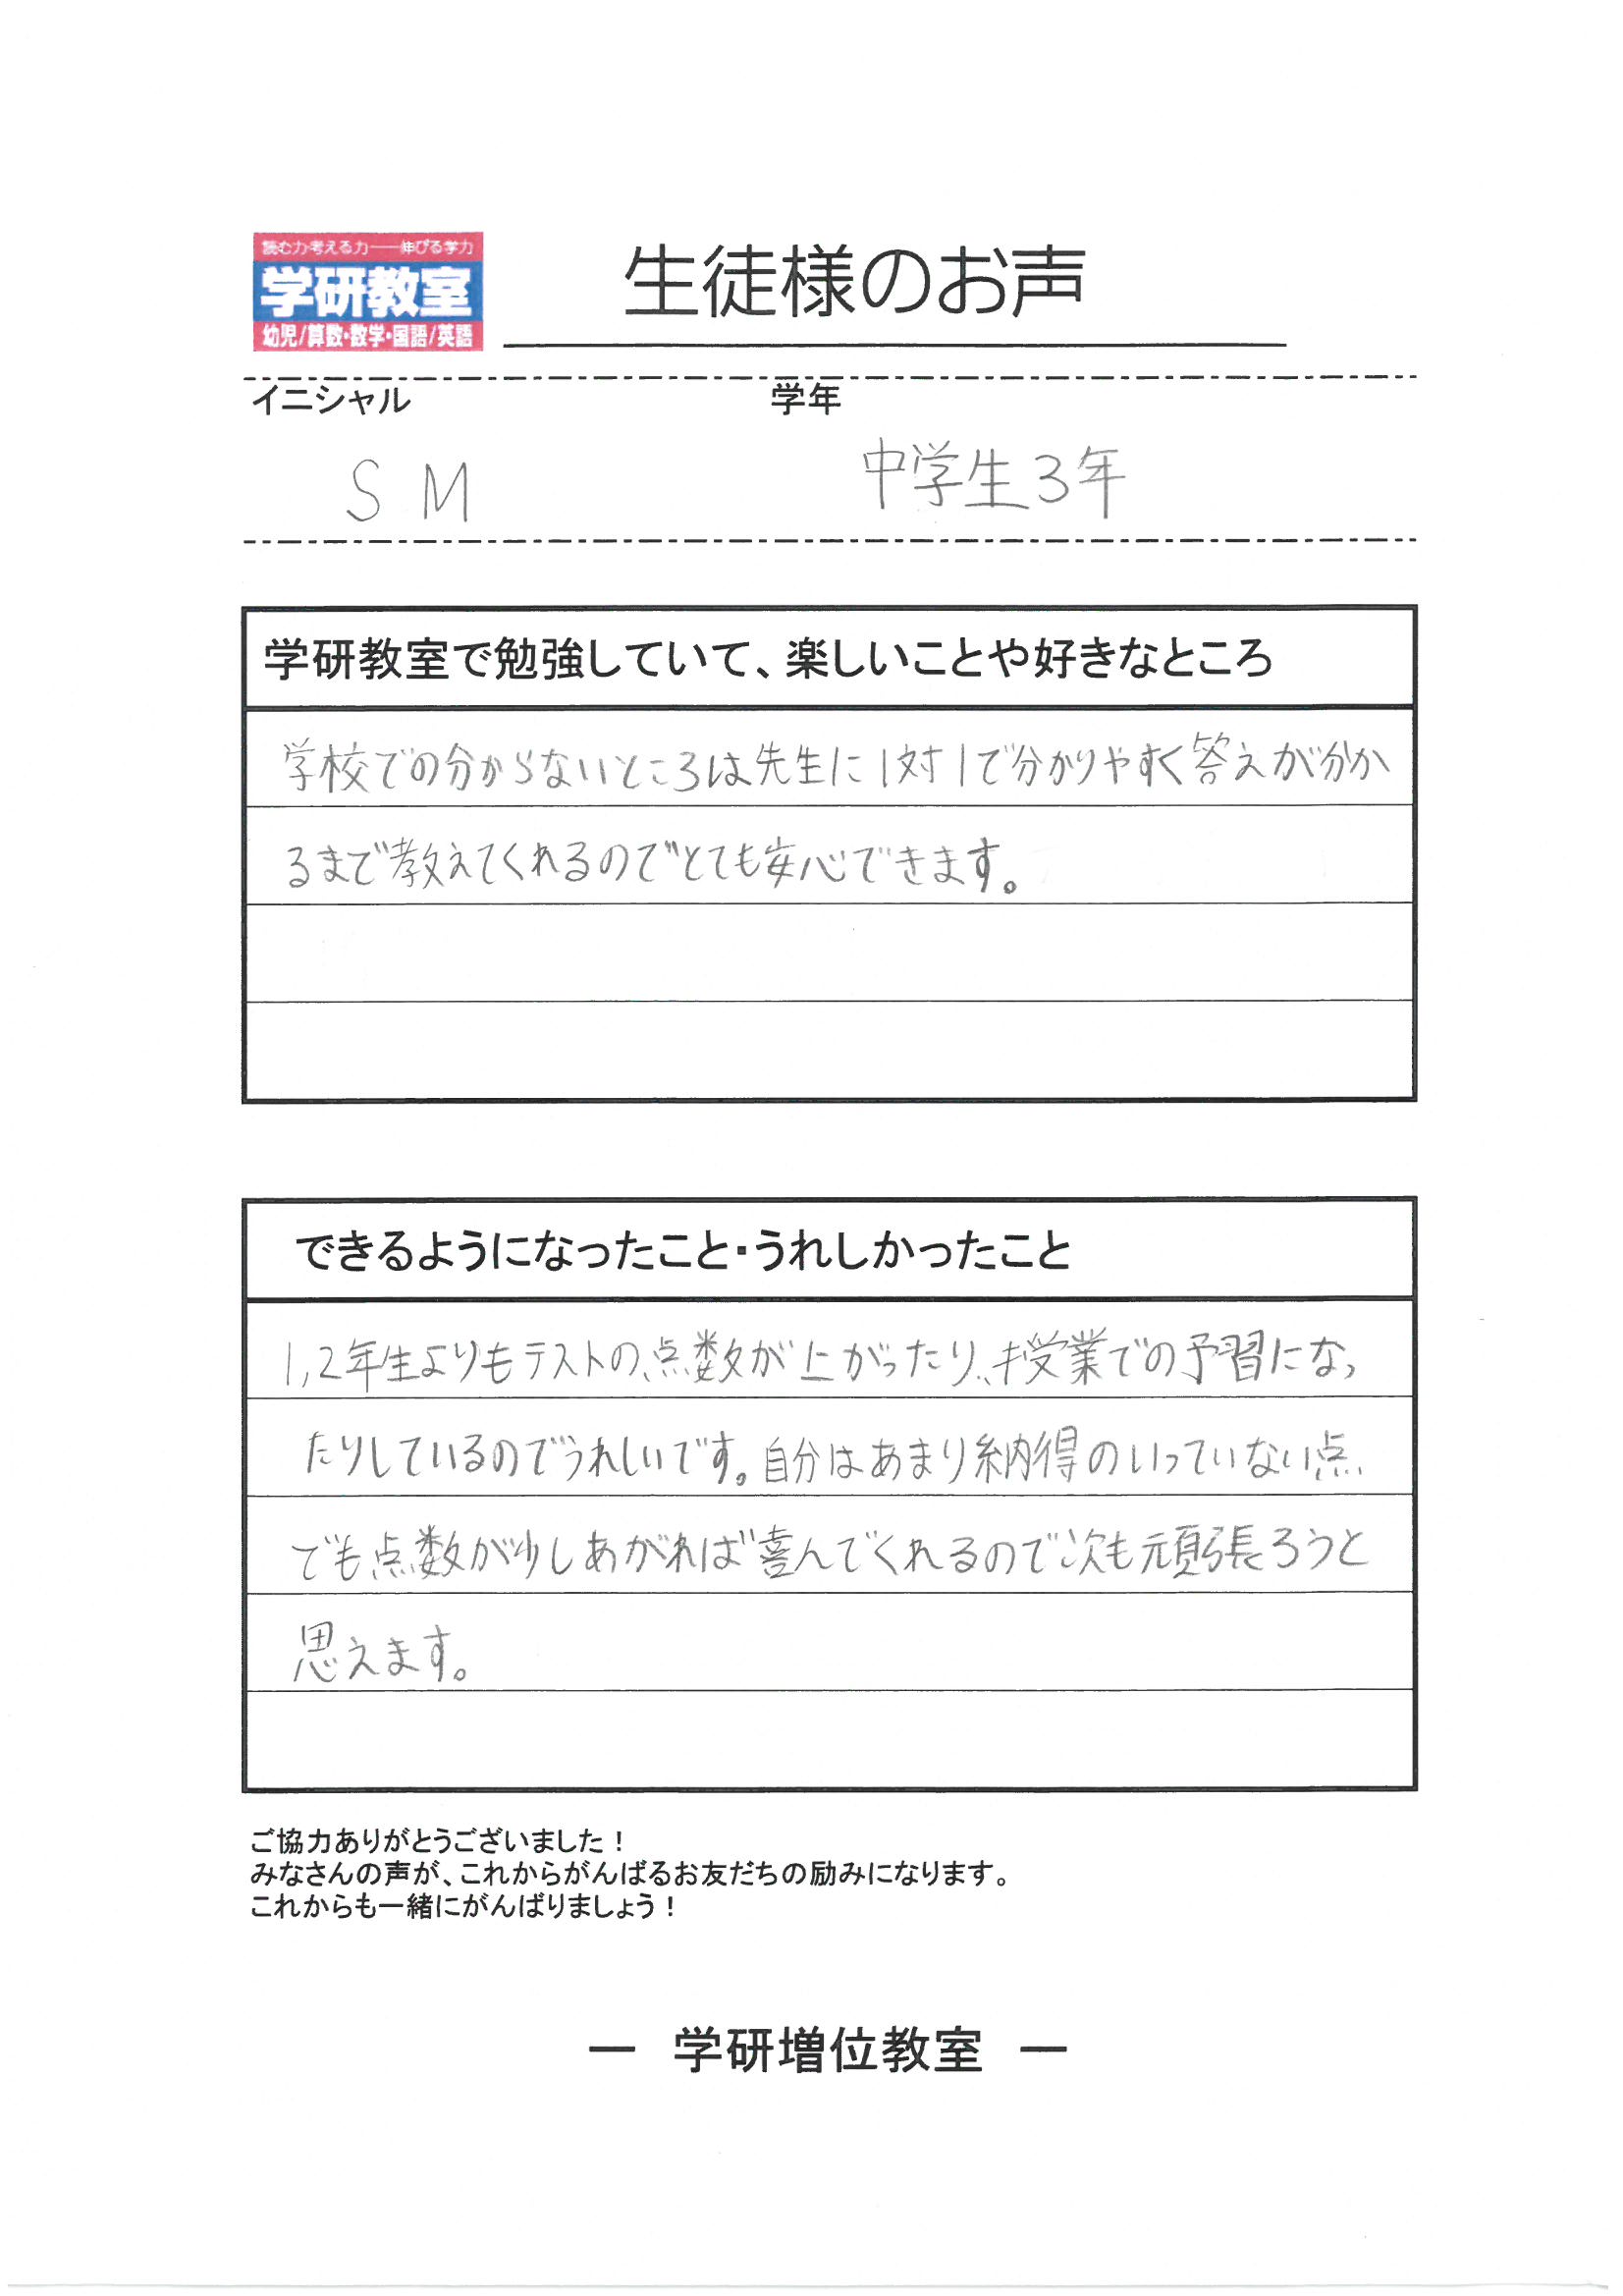 読む力・考える力──伸びる学力
学研教室
幼児/算数・数学・国語/英語
生徒様のお声
イニシャル 学年
S M 中学生3年
学研教室で勉強していて、楽しいことや好きなところ
学校での分からないところは先生に1対1で分かりやすく答えが分か
るまで教えてくれるのでとても安心できます。
できるようになったこと・うれしかったこと
1,2年生よりもテストの点数が上がったり、授業での予習になっ
たりしているのでうれしいです。自分はあまり納得のいっていない点
でも点数が少しあがれば喜んでくれるので次も頑張ろうと
思えます。
ご協力ありがとうございました！
みなさんの声が、これからがんばるお友だちの励みになります。
これからも一緒にがんばりましょう！
― 学研増位教室 ―